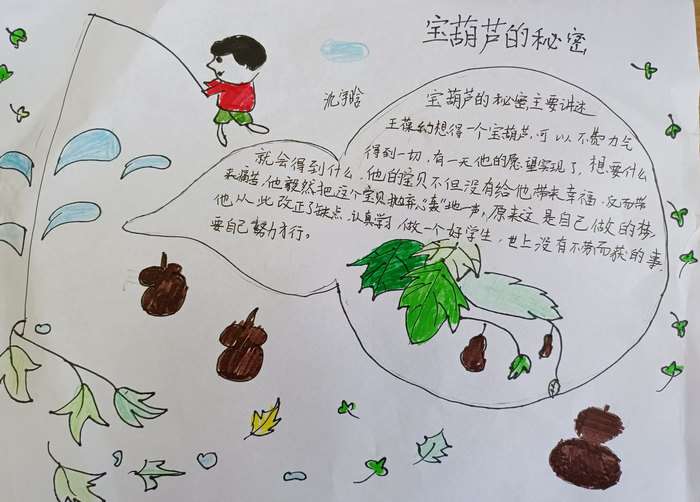 宝葫芦的秘密
宝葫芦的秘密主要讲述
王葆幻想得一个宝葫芦,可以不费力气
得到一切,有一天他的愿望实现了,想要什么
就会得到什么,他的宝贝不但没有给他带来幸福,反而带
来痛苦,他毅然把这个宝贝抛弃"轰"地一声,原来这是自己做的梦
他从此改正了缺点,认真学习做一个好学生,世上没有不劳而获的事,
要自己努力才行。